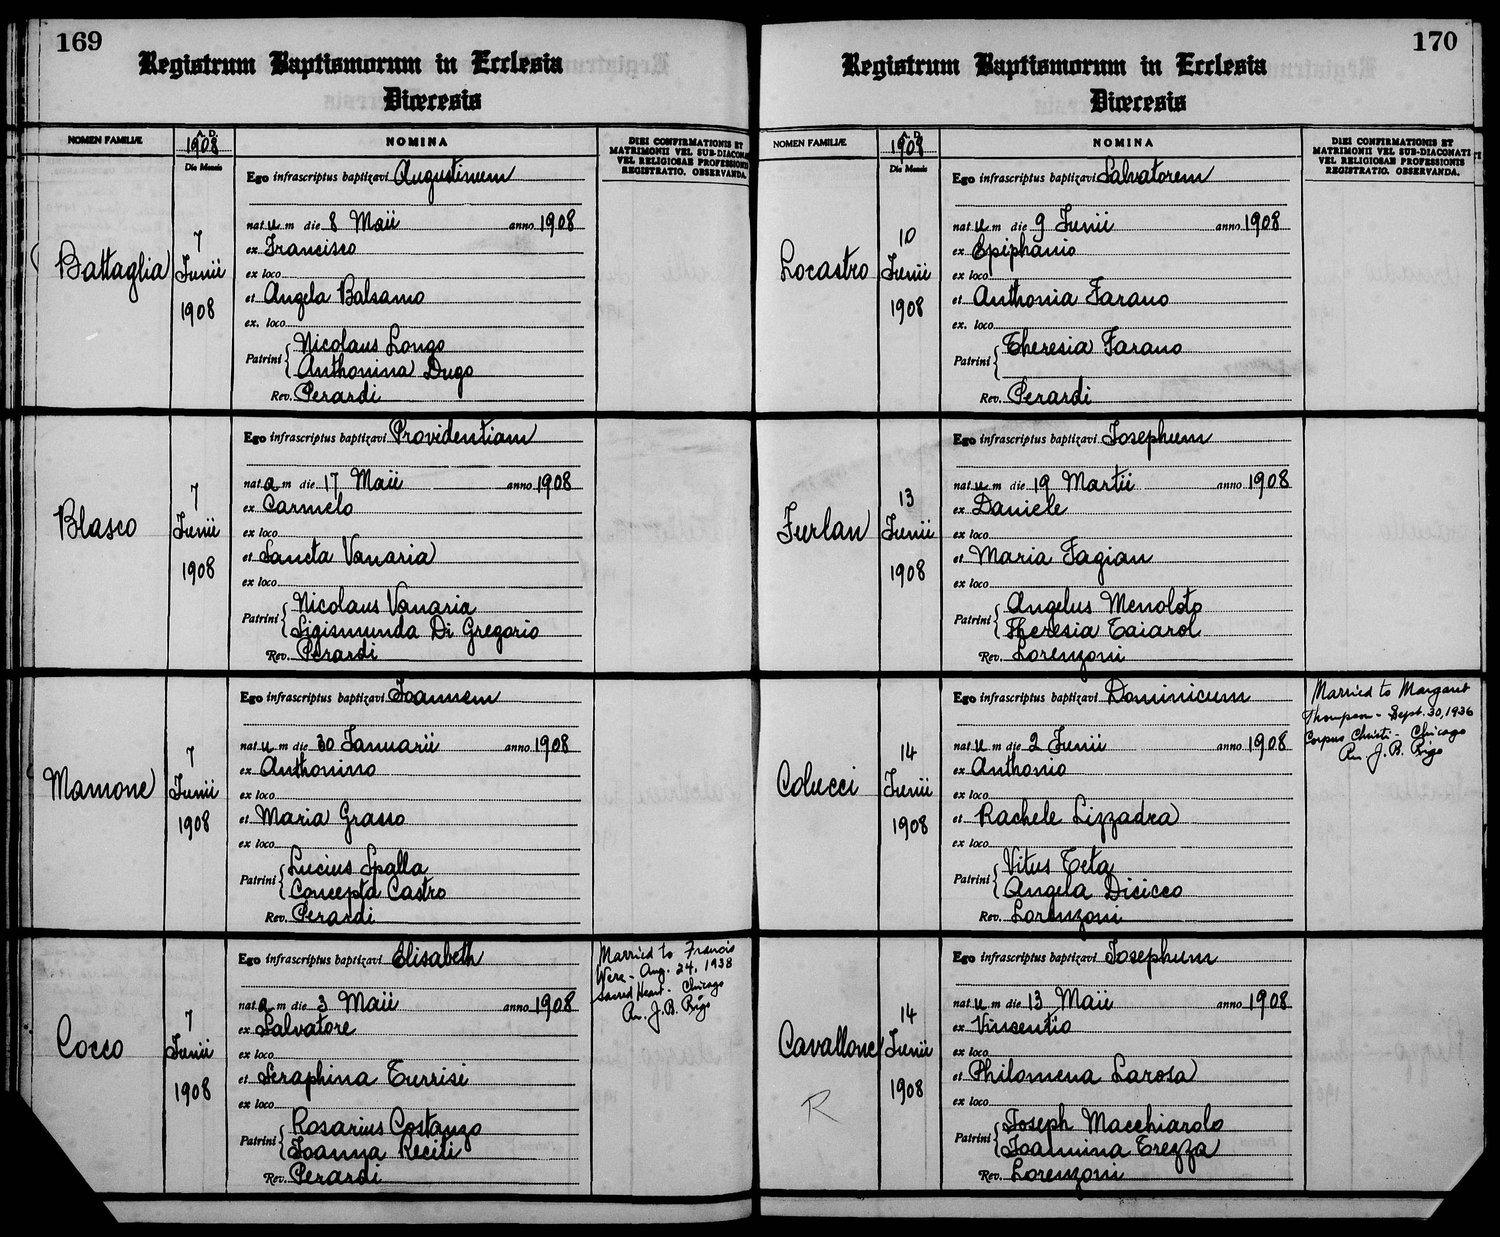 169
Registrum Baptismorum in Ecclesia
Diœcesis
NOMEN FAMILIÆ
A. D.
1908
Die Mensis
NOMINA
DIEI CONFIRMATIONIS ET
MATRIMONII VEL SUB-DIACONA
VEL RELIGIOSAE PROFESSIONIS
REGISTRATIO. OBSERVANDA.
Battaglia
7
Junii
1908
Ego infrascriptus baptizavi Augustinum
natum die 8 Maii anno 1908
ex Francisco
ex loco
et Angela Balsamo
ex. loco
Patrini Nicolaus Longo
Anthonina Dugo
Rev. Perardi
Blasco
7
Junii
1908
Ego infrascriptus baptizavi Providentiam
natam die 17 Maii anno 1908
ex Carmelo
ex loco
et Sancta Vanaria
ex loco
Patrini Nicolaus Vanaria
Sigismunda Di Gregorio
Rev. Perardi
Mamone
7
Junii
1908
Ego infrascriptus baptizavi Joannem
natum die 30 Januarii anno 1908
ex Anthonino
ex loco
et Maria Grasso
ex loco
Patrini Lucius Spalla
Concepta Castro
Rev. Perardi
Cocco
7
Junii
1908
Ego infrascriptus baptizavi Elisabeth
natam die 3 Maii anno 1908
ex Salvatore
ex loco
et Seraphina Turrisi
ex loco
Patrini Rosarius Costanzo
Joanna Reciti
Rev. Perardi
Married to Francis
Were - Aug. 24, 1938
Sacred Heart - Chicago
Rev. J. B. Rigo
170
Registrum Baptismorum in Ecclesia
Diœcesis
NOMEN FAMILIÆ
A. D.
1908
Die Mensis
NOMINA
DIEI CONFIRMATIONIS ET
MATRIMONII VEL SUB-DIACONATI
VEL RELIGIOSAE PROFESSIONIS
REGISTRATIO. OBSERVANDA.
Locastro
10
Junii
1908
Ego infrascriptus baptizavi Salvatorem
natum die 9 Junii anno 1908
ex Epiphanio
ex loco
et Anthonia Farano
ex. loco
Patrini Theresia Farano
Rev. Perardi
Furlan
13
Junii
1908
Ego infrascriptus baptizavi Josephum
natum die 19 Martii anno 1908
ex Daniele
ex loco
et Maria Fagian
ex loco
Patrini Angelus Menoloto
Theresia Taiarol
Rev. Lorenzoni
Colucci
14
Junii
1908
Ego infrascriptus baptizavi Dominicum
natum die 2 Junii anno 1908
ex Anthonio
ex loco
et Rachele Lizzadra
ex loco
Patrini Vitus Teta
Angela Dicicco
Rev. Lorenzoni
Married to Margaret
Thompson - Sept. 30, 1936
Corpus Christi - Chicago
Rev. J. B. Rigo
Cavallone
R
14
Junii
1908
Ego infrascriptus baptizavi Josephum
natum die 13 Maii anno 1908
ex Vincentio
ex loco
et Philomena Larosa
ex loco
Patrini Joseph Macchiarolo
Joannina Trezza
Rev. Lorenzoni